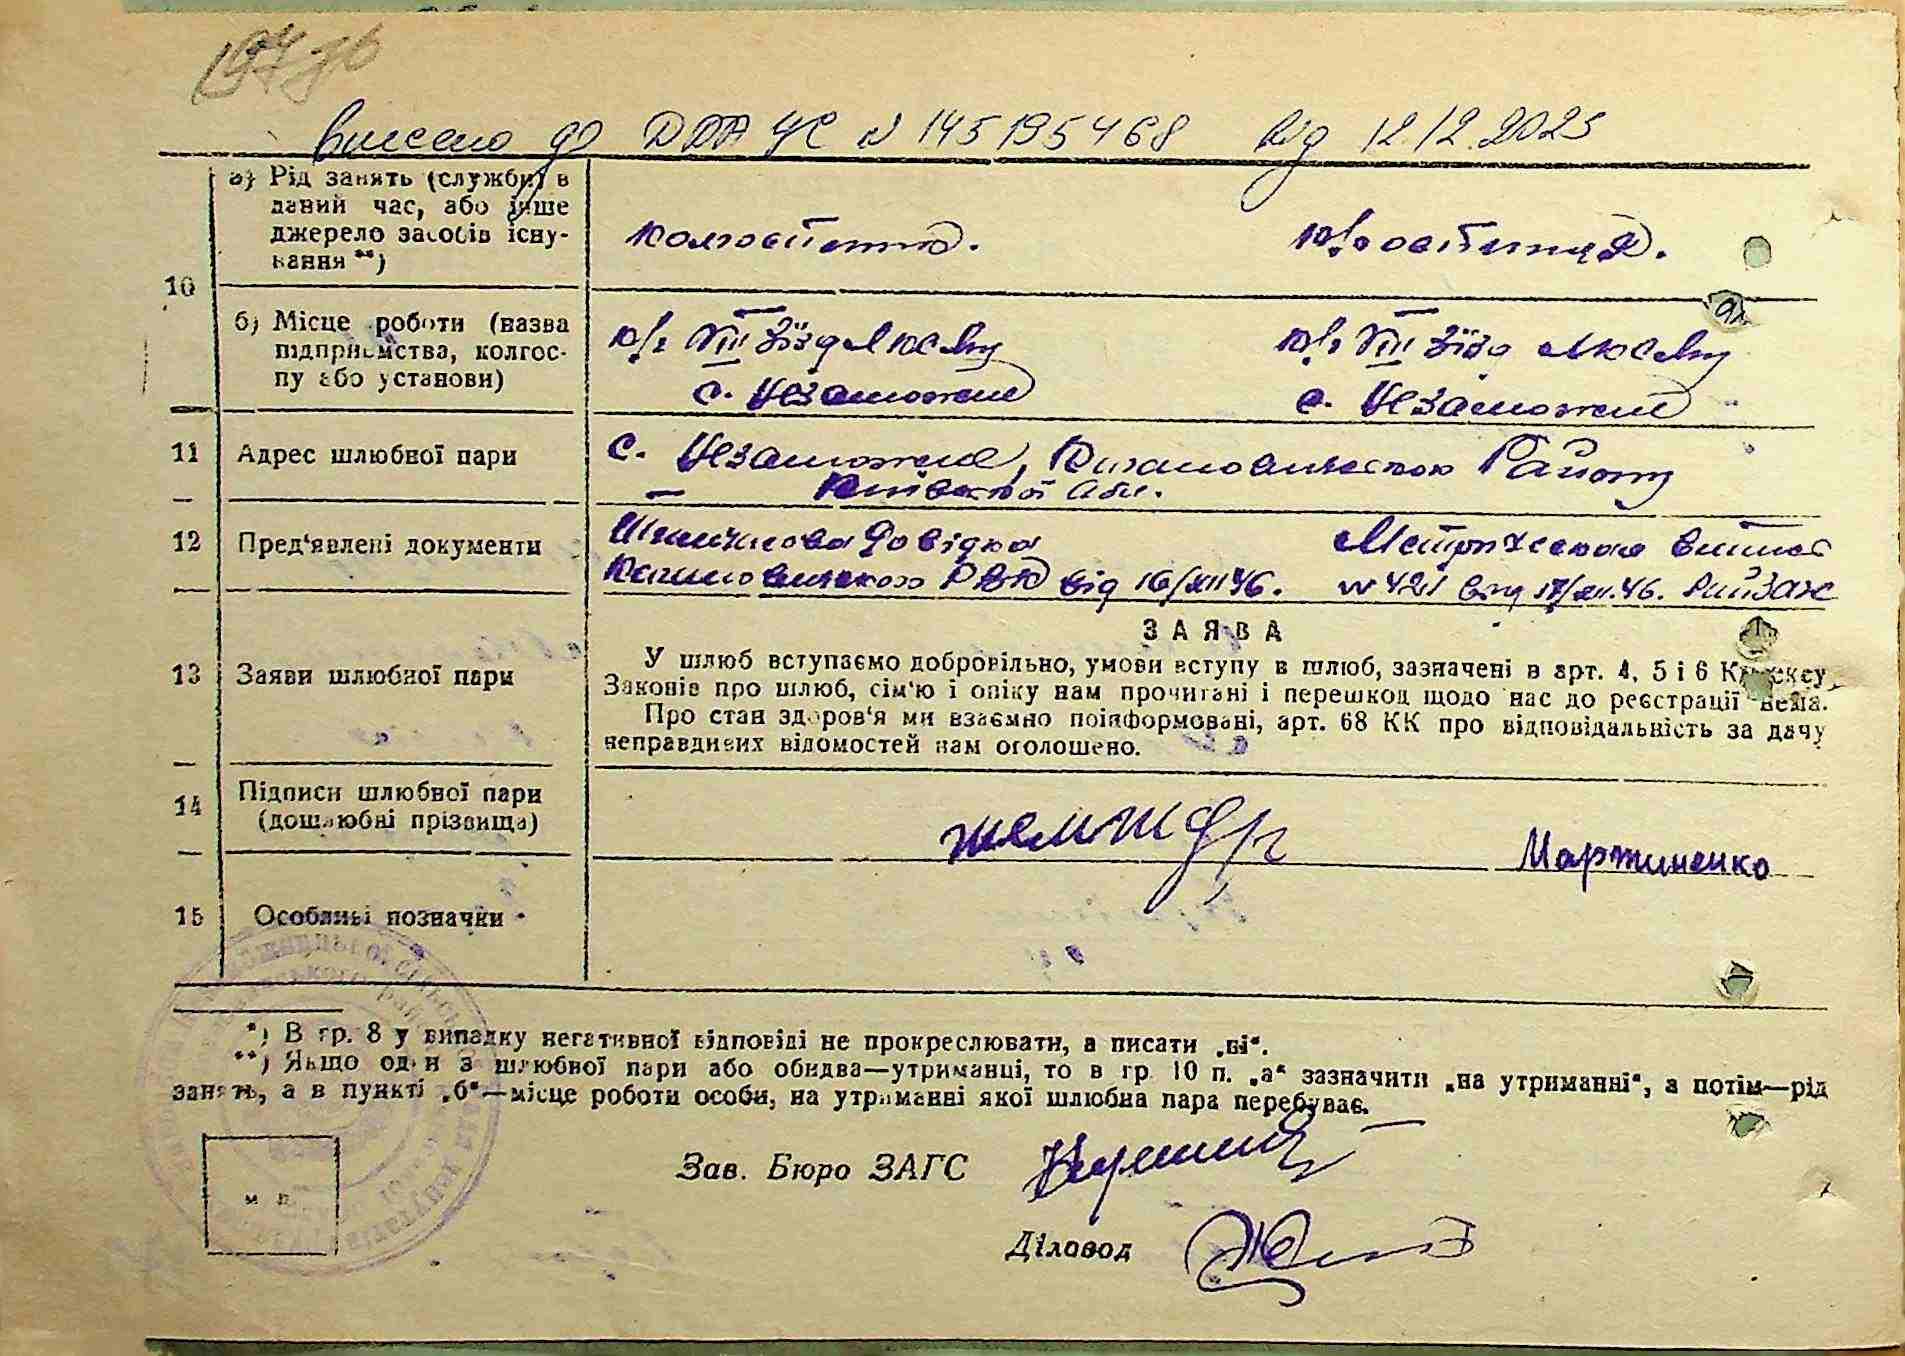 197 зв
внесено до ДРАЦС № 145195468 від 12.12.2025
10
а) Рід занять (служби) в
даний час, або інше
джерело засобів існу-
вання **)
колгоспник. к/госпниця.
б) Місце роботи (назва
підприємства, колгос-
пу або установи)
к/г VIII зїзд ЛКСМУ к/г VIII зїзд ЛКСМУ
с. Незаможне с. Незаможне
11 Адрес шлюбної пари
с. Незаможне, Кагановическою Району
Київської обл.
12 Пред'явлені документи
довідка Метрическая
від 16/XII 46. № 421 від 17/XII.46.
ЗАЯВА
13 Заяви шлюбної пари
У шлюб вступаємо добровільно, умови вступу в шлюб, зазначені в арт. 4, 5 і 6 Кодексу
Законів про шлюб, сім'ю і опіку нам прочитані і перешкод щодо нас до реєстрації нема.
Про стан здоров'я ми взаємно поінформовані, арт. 68 КК про відповідальність за дачу
неправдивих відомостей нам оголошено.
14 Підписи шлюбної пари
(дошлюбні прізвища)
Мартиненко
15 Особливі позначки
*) В гр. 8 у випадку негативної відповіді не прокреслювати, а писати „ні“.
**) Якщо один з шлюбної пари або обидва—утриманці, то в гр. 10 п. „а“ зазначити „на утриманні“, а потім—рід
занять, а в пункті „б“—місце роботи особи, на утриманні якої шлюбна пара перебуває.
Зав. Бюро ЗАГС
м п
Діловод